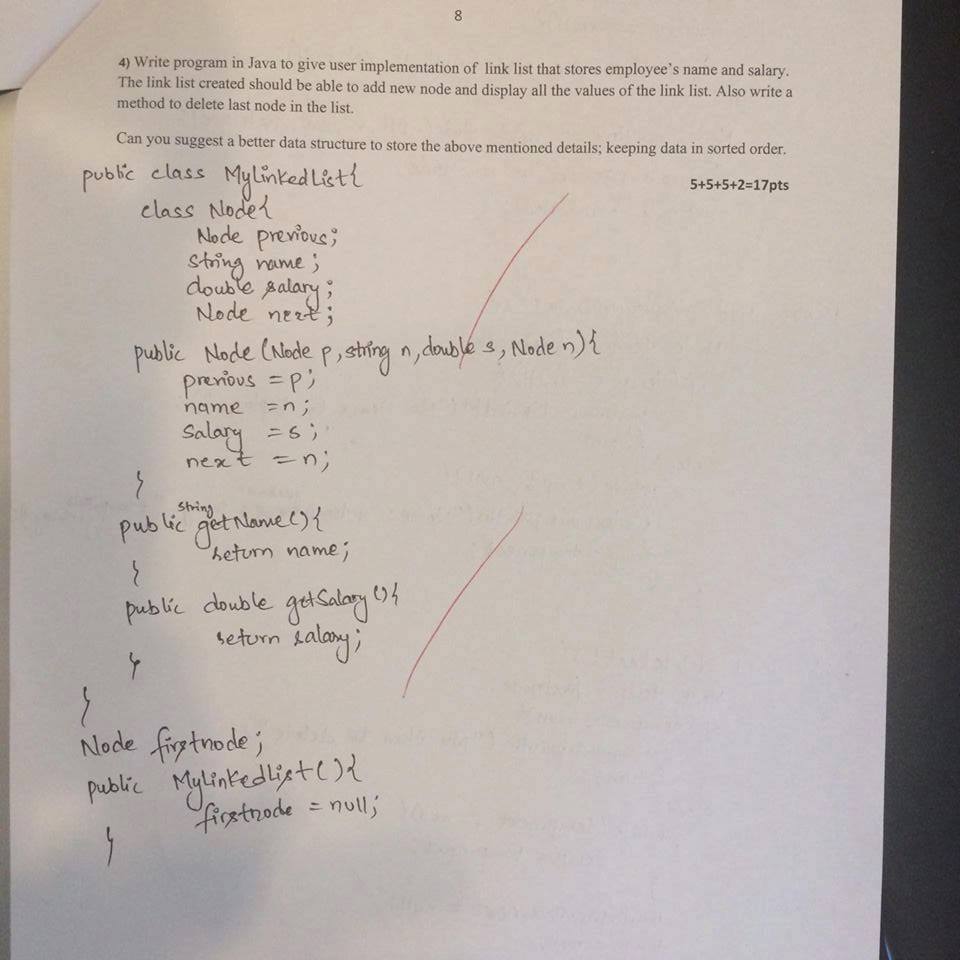 8
4) Write program in Java to give user implementation of link list that stores employee's name and salary.
The link list created should be able to add new node and display all the values of the link list. Also write a
method to delete last node in the list.
Can you suggest a better data structure to store the above mentioned details; keeping data in sorted order.
5+5+5+2=17pts
public class MyLinkedList{
class Node{
Node previous;
string name;
double salary;
Node next;
public Node (Node p, string n, double s, Node n){
previous = p;
name = n;
salary = s;
next = n;
}
public String getName(){
return name;
}
public double getSalary(){
return salary;
}
}
Node firstnode;
public MyLinkedlist(){
firstnode = null;
}